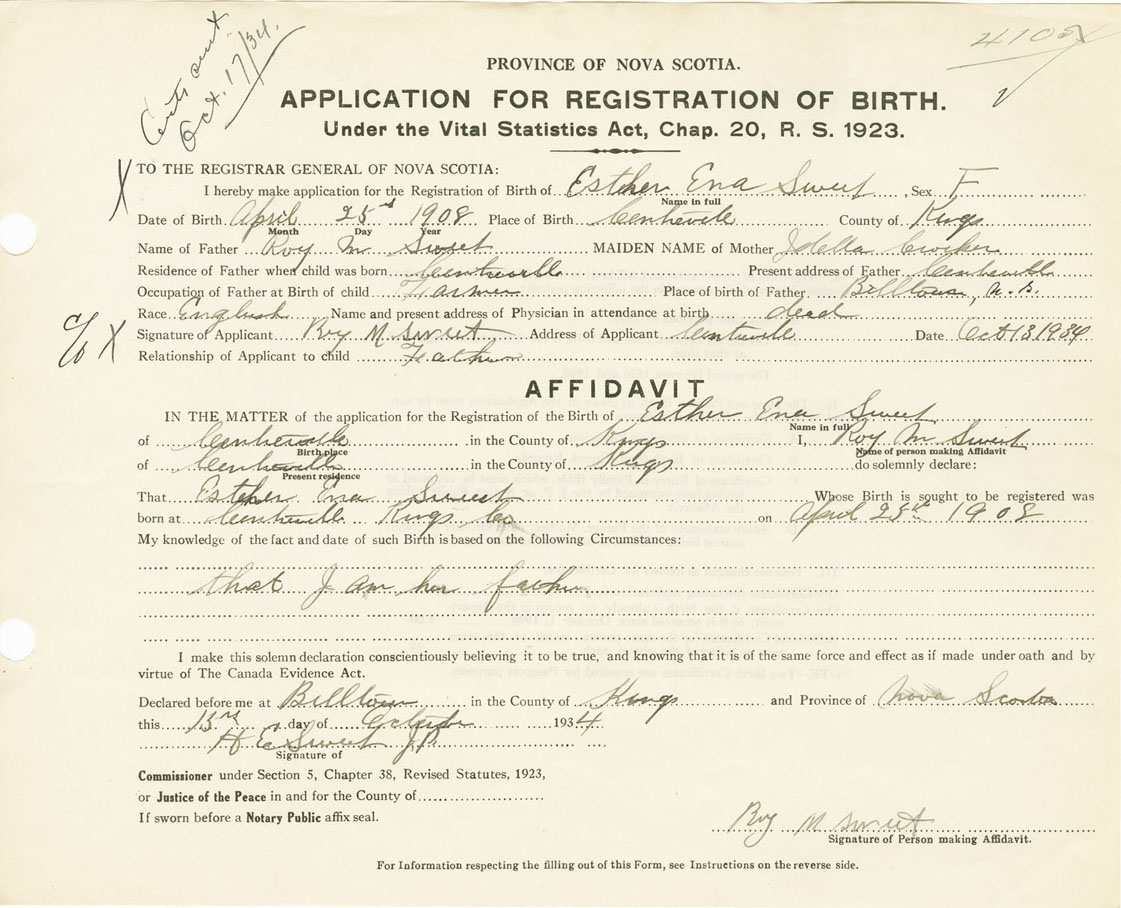 Certs sent
Oct. 17/34.
4102
PROVINCE OF NOVA SCOTIA.
APPLICATION FOR REGISTRATION OF BIRTH.
Under the Vital Statistics Act, Chap. 20, R. S. 1923.
X TO THE REGISTRAR GENERAL OF NOVA SCOTIA:
I hereby make application for the Registration of Birth of Esther Ena Sweet, Sex F
Name in full
Date of Birth April 25 1908 Place of Birth Centreville County of Kings
Month Day Year
Name of Father Roy M Sweet MAIDEN NAME of Mother Idella
Residence of Father when child was born Centreville Present address of Father Centreville
Occupation of Father at Birth of child Farmer Place of birth of Father Billtown, N.S.
Race English Name and present address of Physician in attendance at birth dead
c/o X Signature of Applicant Roy M Sweet Address of Applicant Centreville Date Oct 13 1934
Relationship of Applicant to child Father
AFFIDAVIT
IN THE MATTER of the application for the Registration of the Birth of Esther Ena Sweet
Name in full
of Centreville in the County of Kings I, Roy M Sweet
Birth place Name of person making Affidavit
of Centreville in the County of Kings do solemnly declare:
Present residence
That Esther Ena Sweet Whose Birth is sought to be registered was
born at Centreville Kings Co on April 25th 1908
My knowledge of the fact and date of such Birth is based on the following Circumstances:
that I am her father
I make this solemn declaration conscientiously believing it to be true, and knowing that it is of the same force and effect as if made under oath and by
virtue of The Canada Evidence Act.
Declared before me at Billtown in the County of Kings and Province of Nova Scotia
this 13 day of October 1934
H E Sweet J.P.
Signature of
Commissioner under Section 5, Chapter 38, Revised Statutes, 1923,
or Justice of the Peace in and for the County of
If sworn before a Notary Public affix seal.
Roy M Sweet
Signature of Person making Affidavit.
For Information respecting the filling out of this Form, see Instructions on the reverse side.